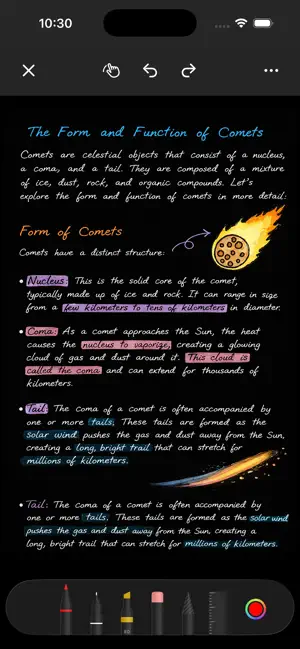 10:30
The Form and Function of Comets
Comets are celestial objects that consist of a nucleus,
a coma, and a tail. They are composed of a mixture
of ice, dust, rock, and organic compounds. Let's
explore the form and function of comets in more detail:
Form of Comets
Comets have a distinct structure:
• Nucleus: This is the solid core of the comet,
typically made up of ice and rock. It can range in size
from a few kilometers to tens of kilometers in diameter.
• Coma: As a comet approaches the Sun, the heat
causes the nucleus to vaporize, creating a glowing
cloud of gas and dust around it. This cloud is
called the coma and can extend for thousands of
kilometers.
• Tail: The coma of a comet is often accompanied by
one or more tails. These tails are formed as the
solar wind pushes the gas and dust away from the Sun,
creating a long, bright trail that can stretch for
millions of kilometers.
• Tail: The coma of a comet is often accompanied by
one or more tails. These tails are formed as the solar wind
pushes the gas and dust away from the Sun, creating a
long, bright trail that can stretch for millions of kilometers.